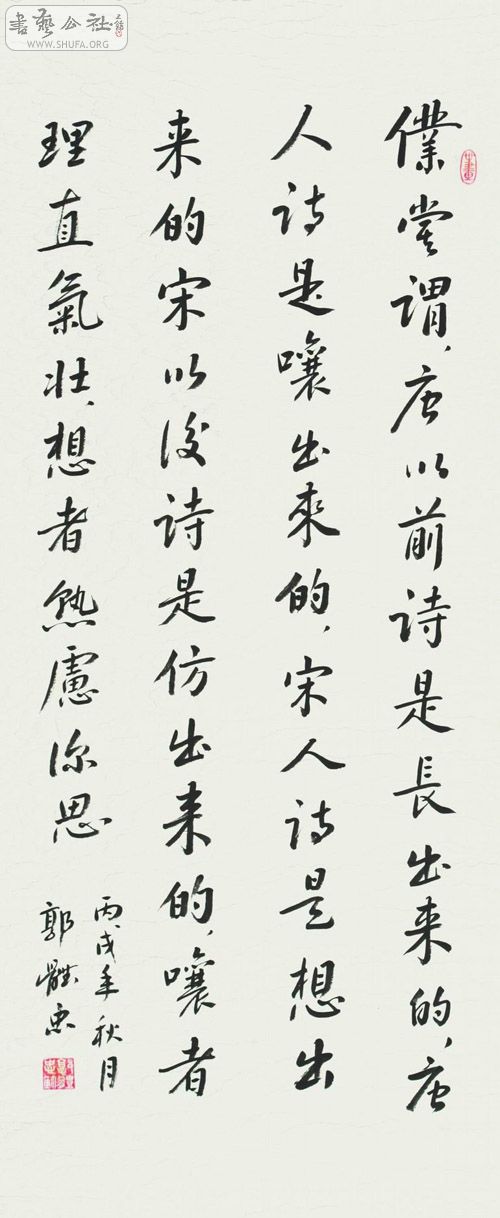 書藝公社
WWW.SHUFA.ORG
僕嘗謂，唐以前詩是長出来的，唐
人詩是嚷出來的，宋人詩是想出
来的宋以後詩是仿出来的，嚷者
理直氣壯，想者熟慮深思
丙戌年秋月
郭忠